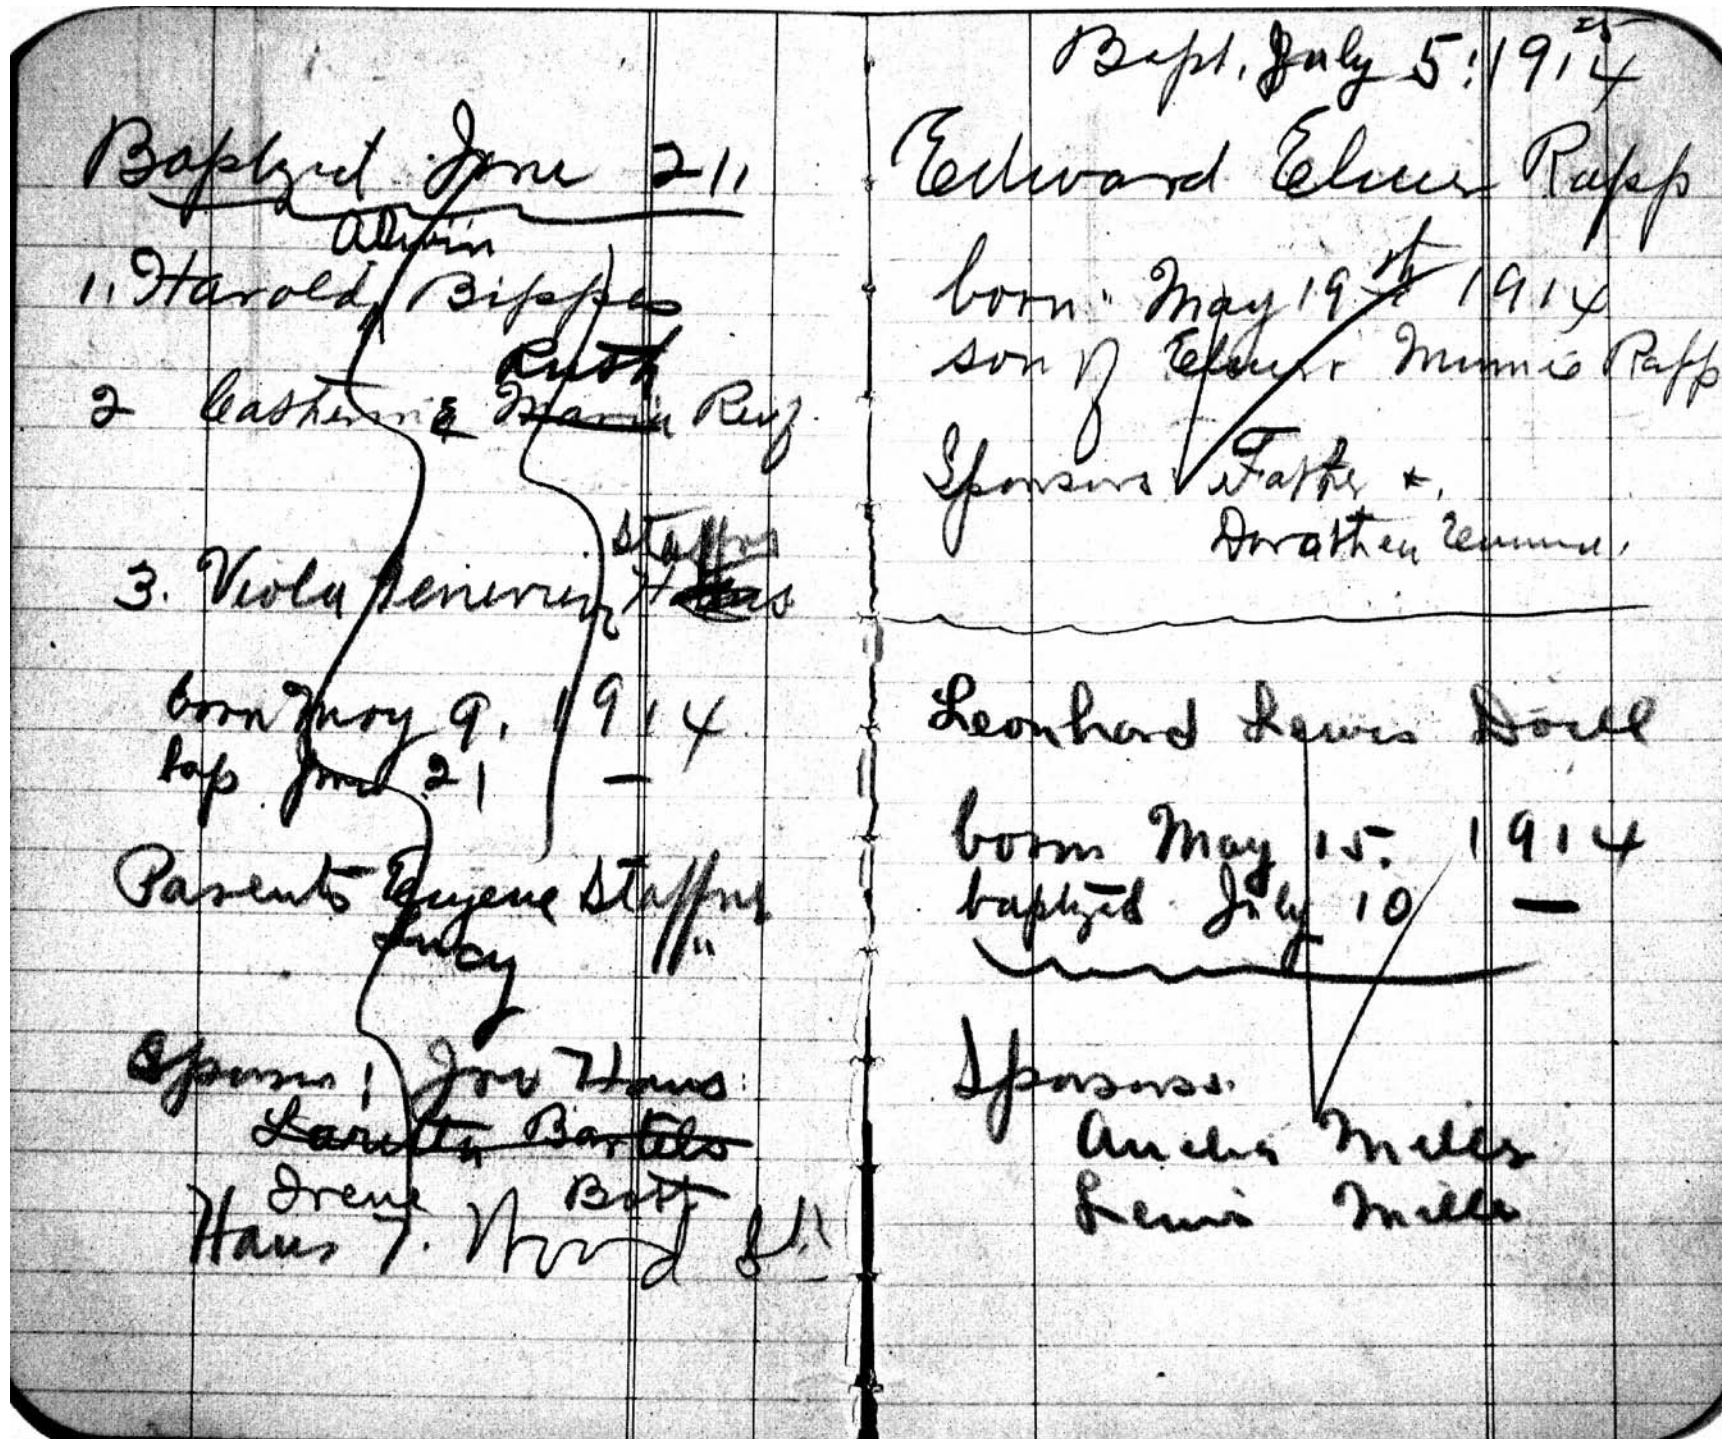 Baptzied June 21,
Alwin
1, Harold, Bippes
Ruth
2 Catherine Maria Reif
Staffns
3. Viola
born May 9, 1914
bap June 21 —
Parents Eugene
Lucy "
Sponsors: Haus
Loretta Bartels
Irene Bott
Haus 7. Wood St.
Bapt. July 5: 1914
Edward Elmer Rapp
born May 19 1914
son of Elmer & Minnie Rapp
Sponsors Father &
Dorathea
Leonhard Lewis Doell
born May 15. 1914
baptzied July 10 —
Sponsors.
Amelia Miller
Lewis Miller